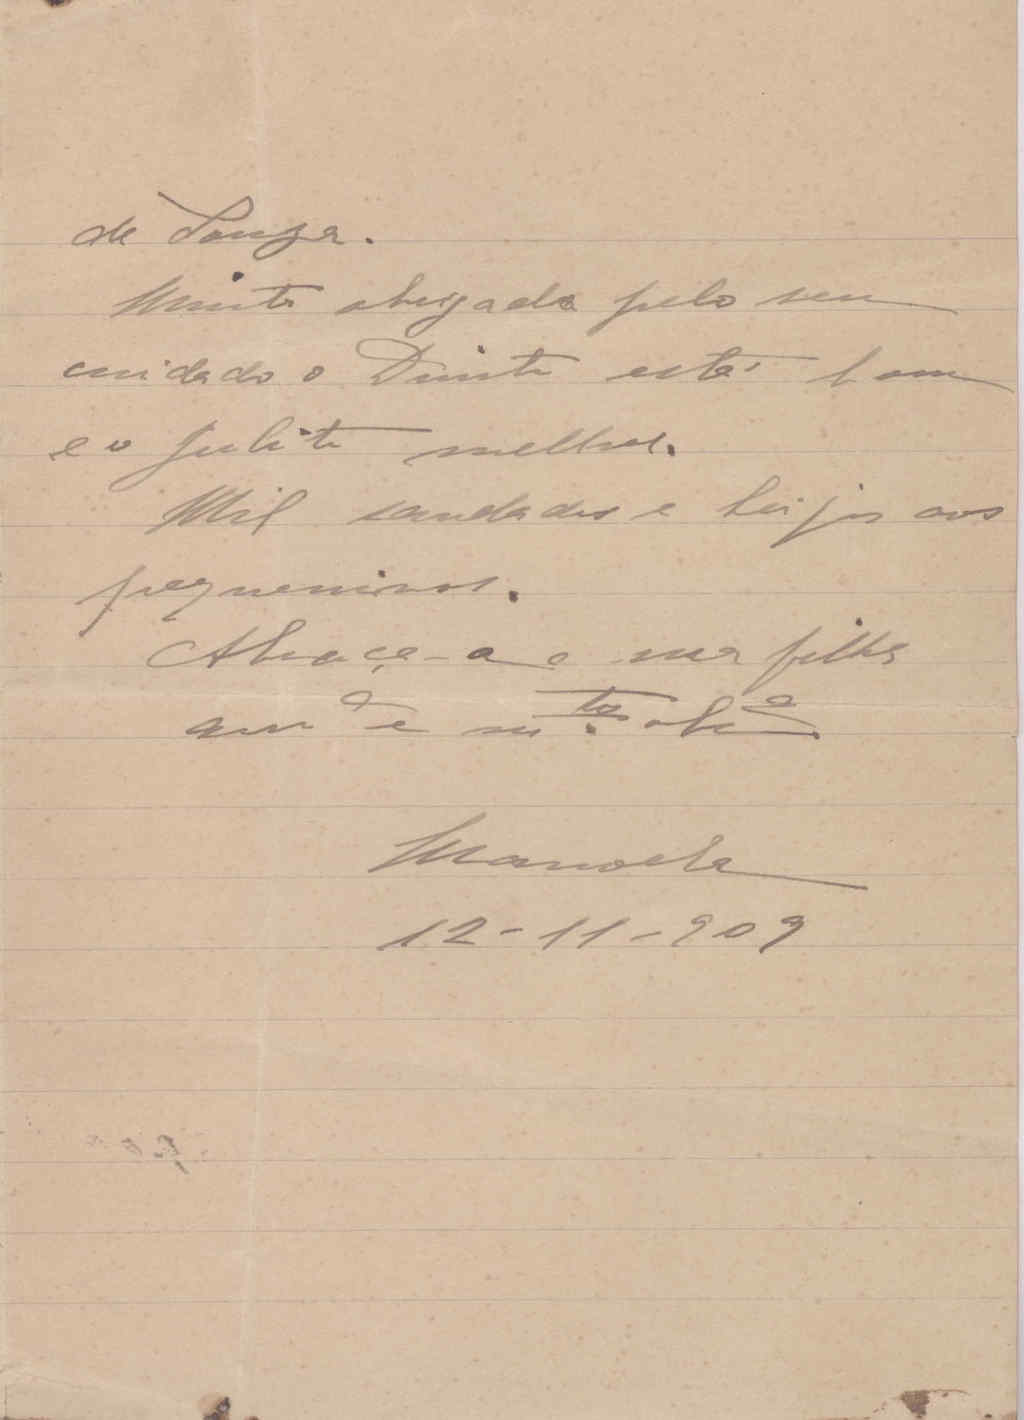 de Souza.
Muito obrigada pelo seu
cuidado o Diniz está bom
e o Julito melhor.
Mil saudades e beijos aos
pequeninos.
Abraça-a e sua filha
amª e mto obrª.
Manoela
12-11-909